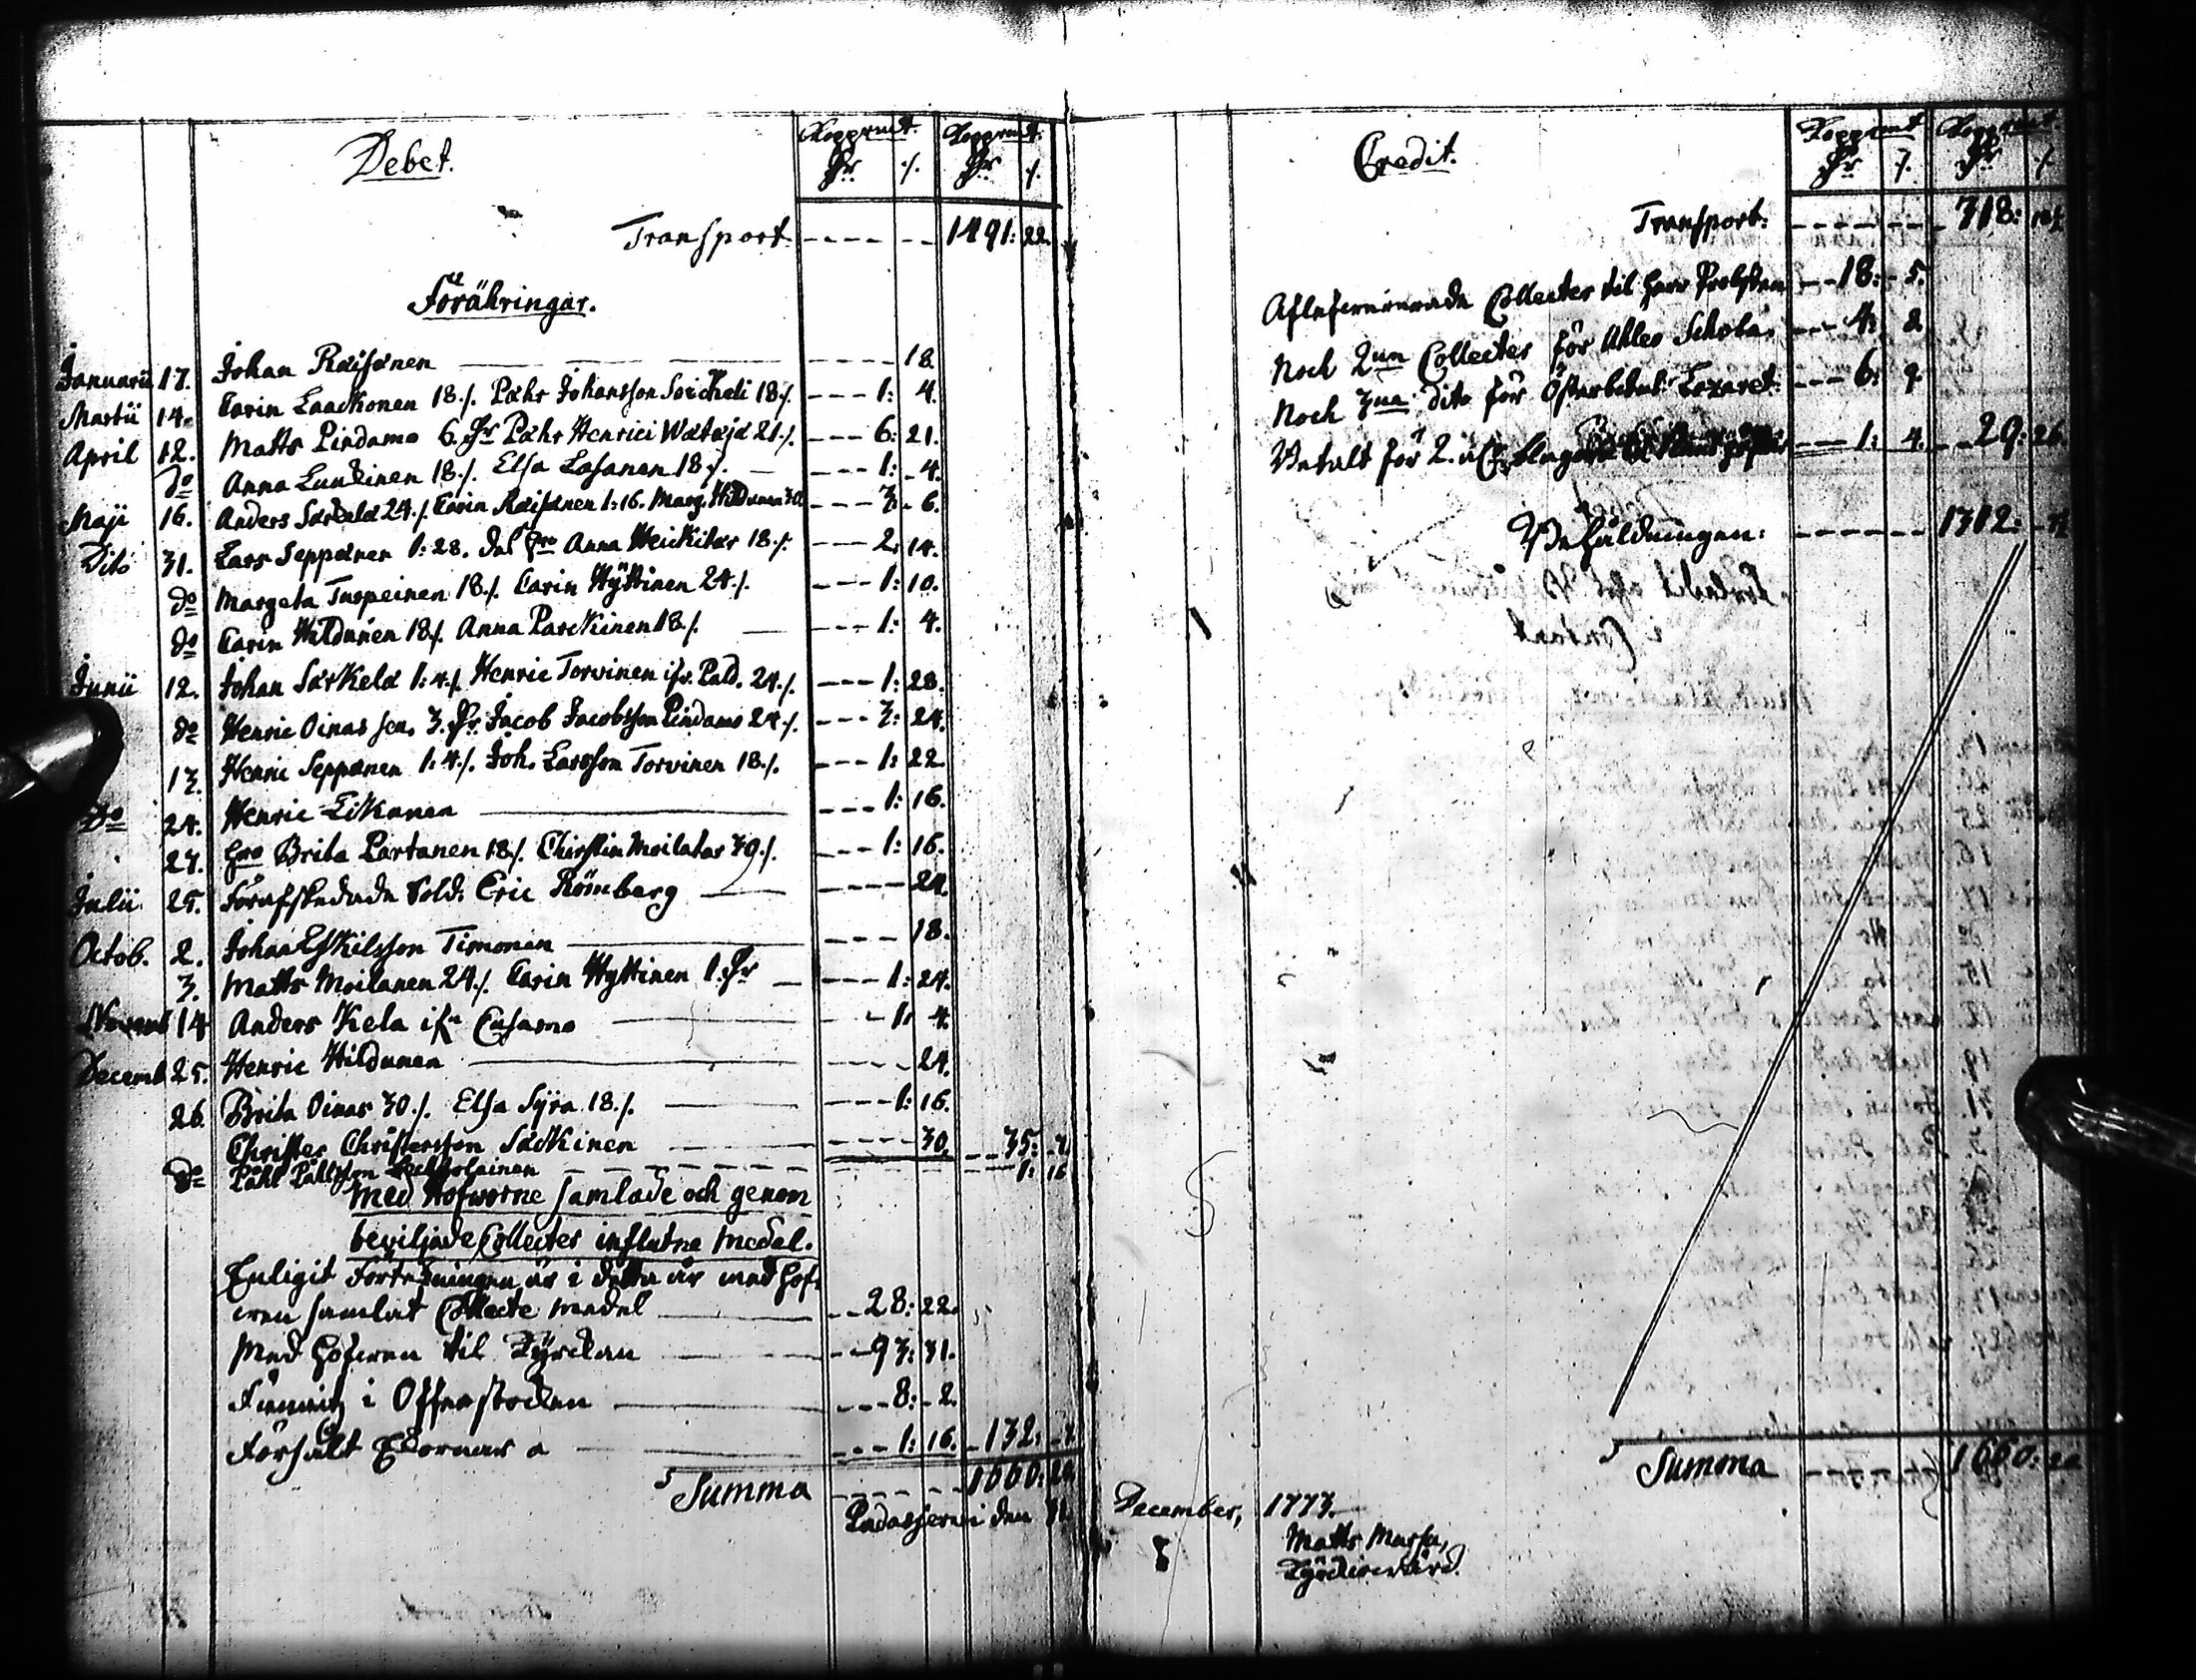 Debet.
Kopprmt. Kopprmt.
Dr ./. Dr ./.
Transport. 1491: 22.
Förähringar.
Januarii 17. Johan Räisänen 18.
Martii 14. Carin Laackonen 18./. Påhr Johansson 18./. 1: 4.
April 12. Matts Pindamo 6. Dr Påhr Henrici Wätäjä 21./. 6: 21.
do Anna Lunkinen 18./. Elsa Lasanen 18./. 1: 4.
Maji 16. Anders Särkelä 24./. Carin Räisänen 1:16. Marg. Hildunen 30 3. 6.
Dito 31. Lars Seppänen 1:28. Anna Heickitar 18./. 2. 14.
do Margeta Turpeinen 18./. Carin Hyttinen 24./. 1: 10.
do Carin Hildunen 18./. Anna Parckinen 18./. 1: 4.
Junii 12. Johan Särkelä 1:4./. Henric Torvinen ifr. Puld. 24./. 1: 28.
do Henric Oinas sen. 3. Dr Jacob Jacobsson Pindamo 24./. 3: 24.
13. Henric Seppänen 1:4./. Joh. Larsson Torvinen 18./. 1: 22.
Do 24. Henric Likanen 1: 16.
27. Brita Partanen 18./. Chirstin Moilatar 30./. 1: 16.
Julii 25. Förafskedade Sold: Eric Römberg 24.
Octob. 2. Johan Eskilsson Timonen 18.
3. Matts Moilanen 24./. Carin Hyttinen 1. Dr 1: 24.
Novemb 14 Anders Kela ifrn Cusamo 1: 4.
Decemb 25. Henric Hildunen 24.
26. Brita Oinas 30./. Elsa Syra 18./. 1: 16.
Christer Christersson Säckinen 30. 35: 7.
do Påhl Påhlsson 1: 16
Med Hofworne samlade och genom
beviljade Collecter influtne medel.
Enligit Förtekningen är i detta år med Hof-
wen samlat Collecte medel 28: 22.
Med Hofwen til Kyrckan 93: 31.
Funnitz i Offerstocken 8: 2.
Försålt 1: 16. 132: 7.
Summa 1660: 20.
Pudasjerwi den 31.
Credit.
Kopprmt Kopprmt.
Dr ./. Dr ./.
Transport: 318:
Aflefwererade Collecter til Herr Probsten 18: 5.
Noch 2ne Collecter för Uhleo Schola. 4: 8
Noch 3ne dito för Österbotns Lazaret. 6: 9
Betalt för 2. 1: 4. 29: 26.
Behåldningen: 1312:
Summa 1660: 20
December, 1773.
Matts Mursu,
Kyrckiowärd.